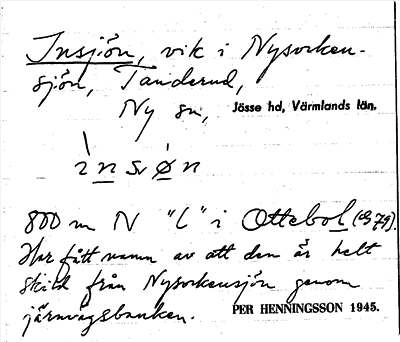 Insjön, vik i Nysocken-
sjön, Tanderud,
Ny sn, Jösse hd, Värmlands län.
800 m N "L" i Ottebol (G79).
Har fått namn av att den är helt
skild från Nysockensjön genom
järnvägsbanken.
PER HENNINGSSON 1945.